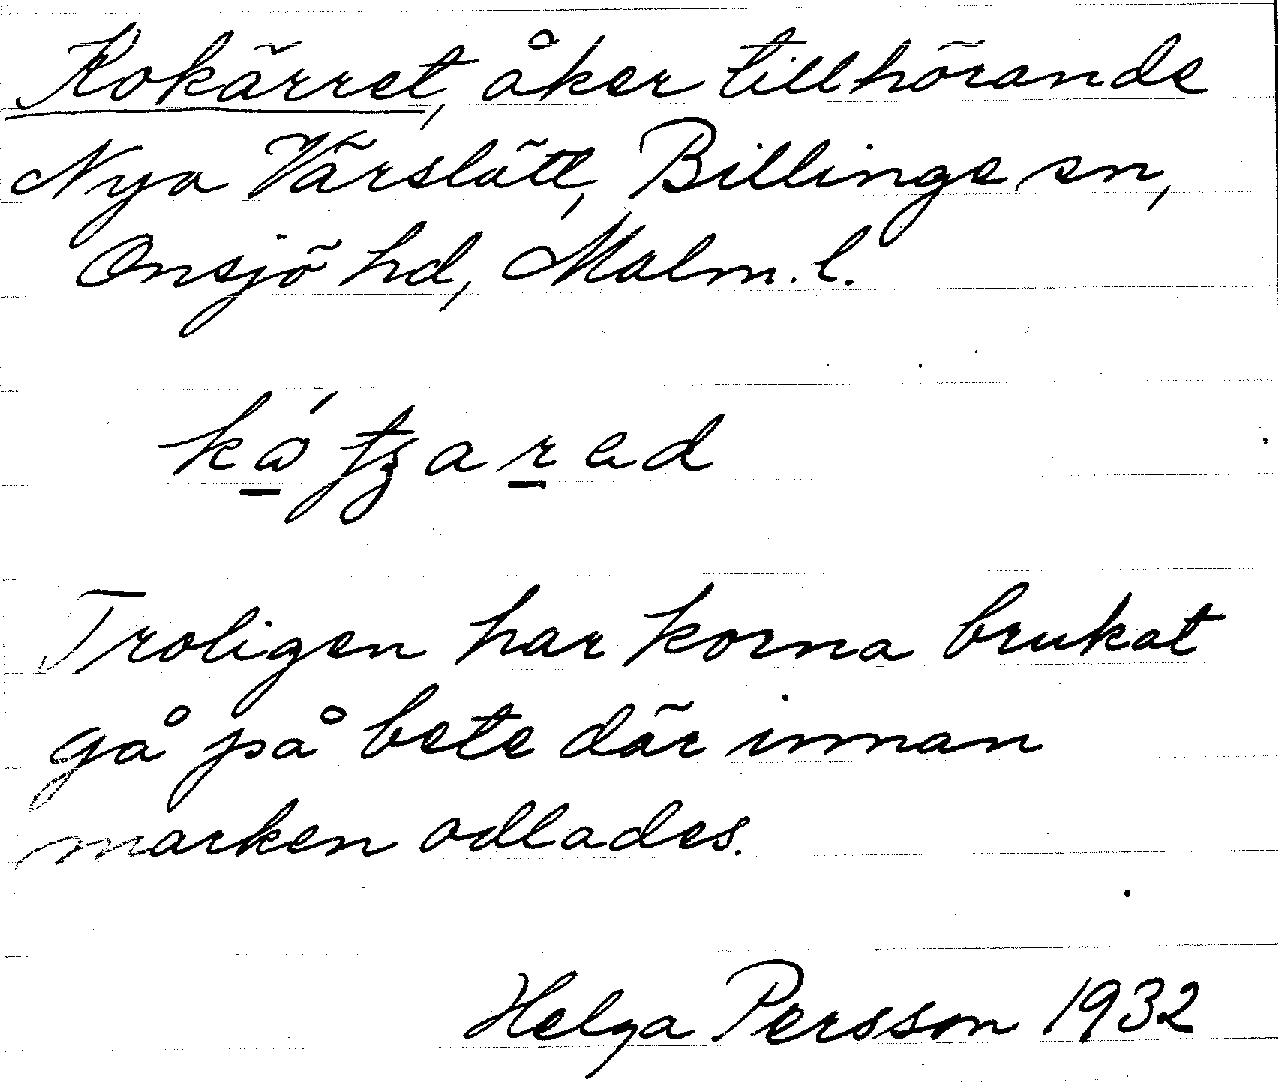 Kokärret, åker tillhörande
Nya Värslätt, Billinge sn,
Onsjö hd, Malm. l.
Troligen har korna brukat
gå på bete där innan
marken odlades.
Helga Persson 1932